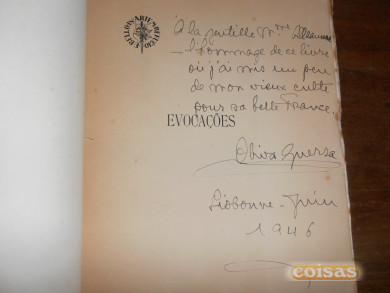 À la gentille Mme
l'hommage de ce livre
où j'ai mis un peu
de mon vieux culte
pour sa belle France.
EVOCAÇÕES
Oliva Guerra
Lisbonne - Juin
1946
coisas